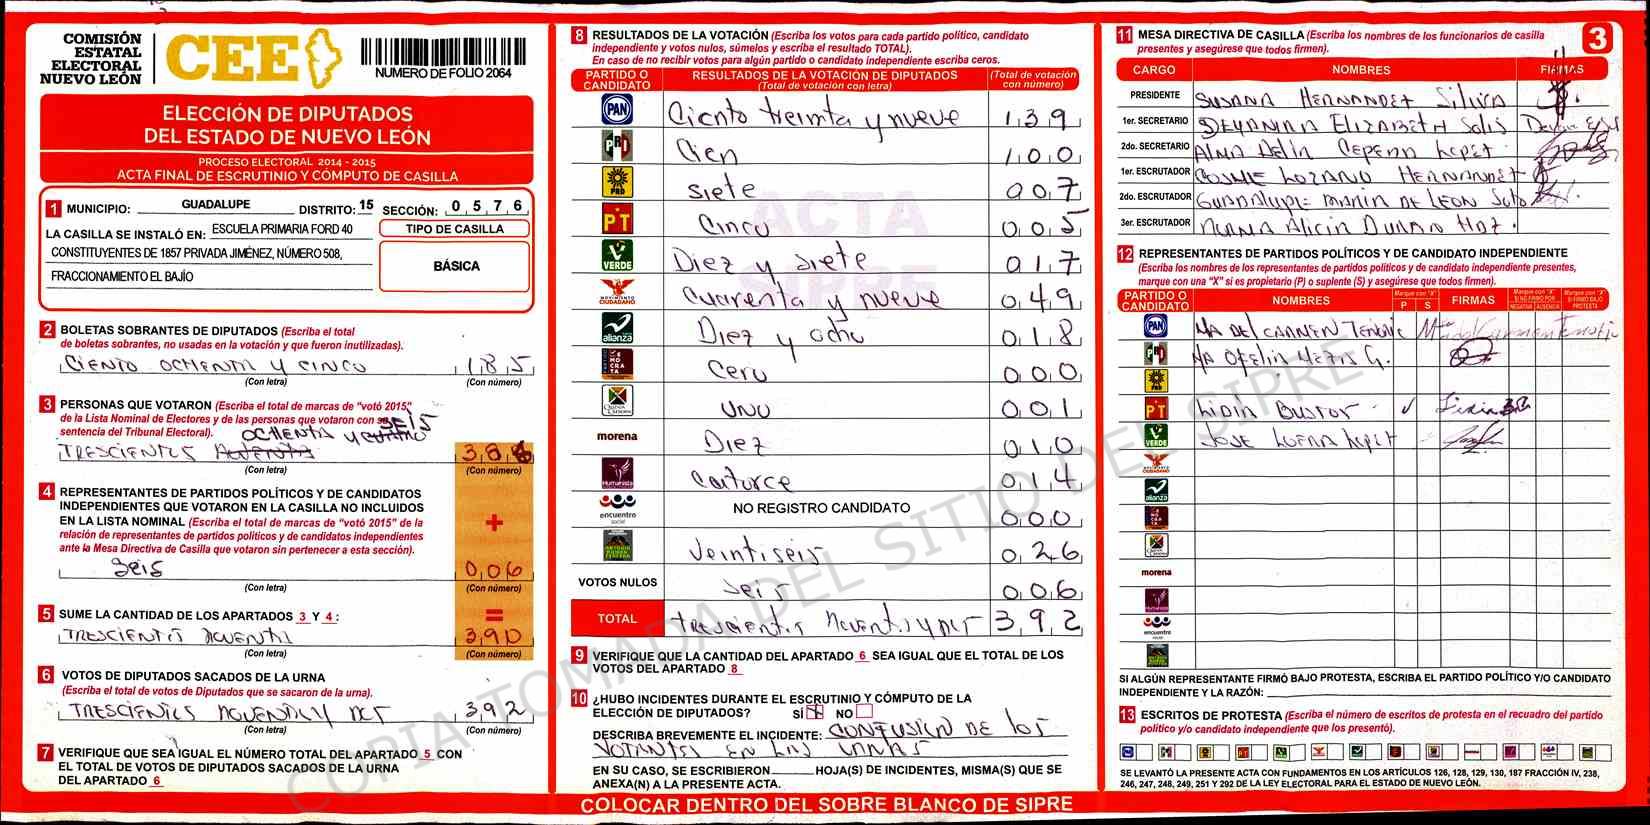 COMISIÓN
ESTATAL
ELECTORAL
NUEVO LEÓN
CEE
NUMERO DE FOLIO 2064
ELECCIÓN DE DIPUTADOS
DEL ESTADO DE NUEVO LEÓN
PROCESO ELECTORAL 2014 - 2015
ACTA FINAL DE ESCRUTINIO Y CÓMPUTO DE CASILLA
1 MUNICIPIO: GUADALUPE DISTRITO: 15 SECCIÓN: 0 5 7 6
LA CASILLA SE INSTALÓ EN: ESCUELA PRIMARIA FORD 40
CONSTITUYENTES DE 1857 PRIVADA JIMÉNEZ, NÚMERO 508,
FRACCIONAMIENTO EL BAJÍO
TIPO DE CASILLA
BÁSICA
2 BOLETAS SOBRANTES DE DIPUTADOS (Escriba el total
de boletas sobrantes, no usadas en la votación y que fueron inutilizadas).
CIENTO OCHENTA Y CINCO 185
(Con letra) (Con número)
3 PERSONAS QUE VOTARON (Escriba el total de marcas de "votó 2015"
de la Lista Nominal de Electores y de las personas que votaron con
sentencia del Tribunal Electoral). OCHENTA Y SEIS
TRESCIENTOS 386
(Con letra) (Con número)
4 REPRESENTANTES DE PARTIDOS POLÍTICOS Y DE CANDIDATOS
INDEPENDIENTES QUE VOTARON EN LA CASILLA NO INCLUIDOS
EN LA LISTA NOMINAL (Escriba el total de marcas de "votó 2015" de la
relación de representantes de partidos políticos y de candidatos independientes
ante la Mesa Directiva de Casilla que votaron sin pertenecer a esta sección).
+
seis 006
(Con letra) (Con número)
5 SUME LA CANTIDAD DE LOS APARTADOS 3 Y 4:
=
390
(Con letra) (Con número)
6 VOTOS DE DIPUTADOS SACADOS DE LA URNA
(Escriba el total de votos de Diputados que se sacaron de la urna).
392
(Con letra) (Con número)
7 VERIFIQUE QUE SEA IGUAL EL NÚMERO TOTAL DEL APARTADO 5 CON
EL TOTAL DE VOTOS DE DIPUTADOS SACADOS DE LA URNA
DEL APARTADO 6
8 RESULTADOS DE LA VOTACIÓN (Escriba los votos para cada partido político, candidato
independiente y votos nulos, súmelos y escriba el resultado TOTAL).
En caso de no recibir votos para algún partido o candidato independiente escriba ceros.
PARTIDO O CANDIDATO
RESULTADOS DE LA VOTACIÓN DE DIPUTADOS
(Total de votación con letra)
(Total de votación con número)
PAN Ciento treinta y nueve 139
PRI Cien 100
PRD siete 007
PT Cinco 005
VERDE Diez y siete 017
MOVIMIENTO CIUDADANO Cuarenta y nueve 049
alianza Diez y ocho 018
DEMOCRATA Cero 000
UNO 001
morena Diez 010
Humanista Catorce 014
encuentro social NO REGISTRO CANDIDATO 000
Veintiseis 026
VOTOS NULOS seis 006
TOTAL 392
9 VERIFIQUE QUE LA CANTIDAD DEL APARTADO 6 SEA IGUAL QUE EL TOTAL DE LOS
VOTOS DEL APARTADO 8
10 ¿HUBO INCIDENTES DURANTE EL ESCRUTINIO Y CÓMPUTO DE LA
ELECCIÓN DE DIPUTADOS? SÍ X NO
DESCRIBA BREVEMENTE EL INCIDENTE: CONFUSION DE LOS
VOTANTES EN LAS URNAS
EN SU CASO, SE ESCRIBIERON HOJA(S) DE INCIDENTES, MISMA(S) QUE SE
ANEXA(N) A LA PRESENTE ACTA.
COLOCAR DENTRO DEL SOBRE BLANCO DE SIPRE
11 MESA DIRECTIVA DE CASILLA (Escriba los nombres de los funcionarios de casilla
presentes y asegúrese que todos firmen).
3
CARGO NOMBRES FIRMAS
PRESIDENTE SUSANA HERNANDEZ Silva
1er. SECRETARIO DEYANIRA ELIZABETH Solis
2do. SECRETARIO Alma Delia Cepeda Lopez
1er. ESCRUTADOR COSME LOZANO HERNANDEZ
2do. ESCRUTADOR GUADALUPE MARIA DE LEON Soto
3er. ESCRUTADOR Alicia Duran
12 REPRESENTANTES DE PARTIDOS POLÍTICOS Y DE CANDIDATO INDEPENDIENTE
(Escriba los nombres de los representantes de partidos politicos y de candidato independiente presentes,
marque con una "X" si es propietario (P) o suplente (S) y asegúrese que todos firmen).
PARTIDO O CANDIDATO NOMBRES Marque con "X" P S FIRMAS Marque con "X" SI NO FIRMÓ POR NEGATIVA AUSENCIA Marque con "X" SI FIRMÓ BAJO PROTESTA
PAN MA DEL CARMEN
PRI MA OFELIA G.
PRD
PT LIDIA BUSTOS
VERDE JOSE
MOVIMIENTO CIUDADANO
alianza
DEMOCRATA
morena
Humanista
encuentro social
SI ALGÚN REPRESENTANTE FIRMÓ BAJO PROTESTA, ESCRIBA EL PARTIDO POLÍTICO Y/O CANDIDATO
INDEPENDIENTE Y LA RAZÓN:
13 ESCRITOS DE PROTESTA (Escriba el número de escritos de protesta en el recuadro del partido
político y/o candidato independiente que los presentó).
SE LEVANTÓ LA PRESENTE ACTA CON FUNDAMENTOS EN LOS ARTÍCULOS 126, 128, 129, 130, 187 FRACCIÓN IV, 238,
246, 247, 248, 249, 251 Y 292 DE LA LEY ELECTORAL PARA EL ESTADO DE NUEVO LEÓN.
ACTA SIPRE
COPIA TOMADA DEL SITIO DEL SIPRE